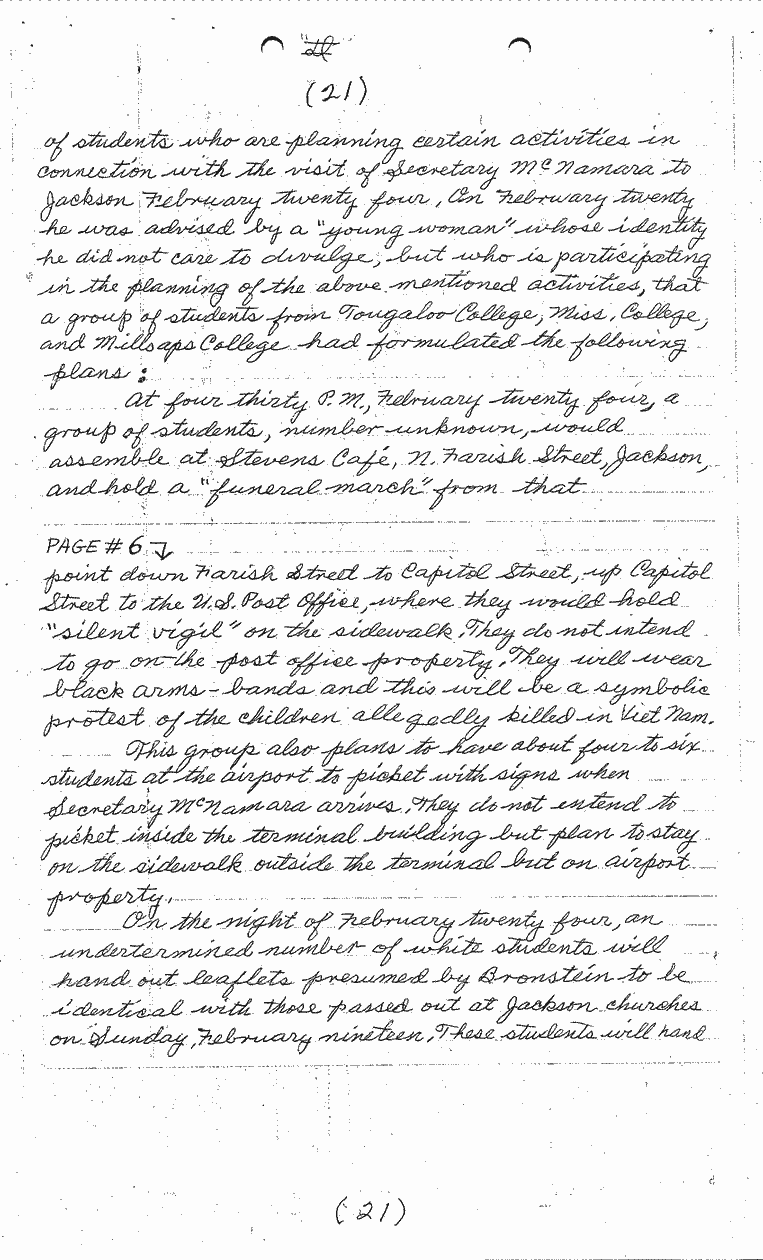 (21)
of students who are planning certain activities in
connection with the visit of Secretary McNamara to
Jackson February twenty four. On February twenty
he was advised by a "young woman" whose identity
he did not care to divulge, but who is participating
in the planning of the above mentioned activities, that
a group of students from Tougaloo College, Miss. College,
and Millsaps College had formulated the following
plans:
At four thirty P.M., February twenty four, a
group of students, number unknown, would
assemble at Stevens Café, N. Farish Street, Jackson,
and hold a "funeral march" from that
PAGE # 6
point down Farish Street to Capitol Street, up Capitol
Street to the U.S. Post Office, where they would hold
"silent vigil" on the sidewalk. They do not intend
to go on the post office property. They will wear
black arms-bands and this will be a symbolic
protest of the children allegedly killed in Viet Nam.
This group also plans to have about four to six
students at the airport to picket with signs when
Secretary McNamara arrives. They do not intend to
picket inside the terminal building but plan to stay
on the sidewalk outside the terminal but on airport
property.
On the night of February twenty four, an
undertermined number of white students will
hand out leaflets presumed by Bronstein to be
identical with those passed out at Jackson churches
on Sunday, February nineteen. These students will hand
(21)